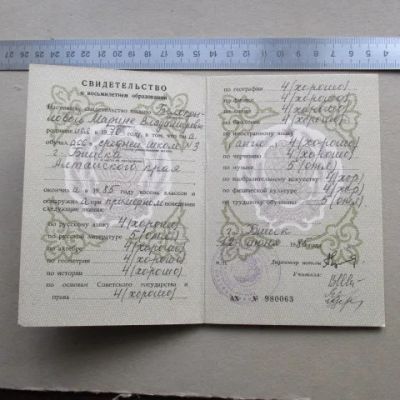 СВИДЕТЕЛЬСТВО
о восьмилетнем образовании
Настоящее свидетельство выдано
Марине Владимировне
родившейся в 1970 году, в том, что он а
обучалась в средней школе №3
г. Бийска
Алтайского края
окончила в 1985 году восемь классов и
обнаружила при примерном поведении
следующие знания:
по русскому языку 4 (хорошо)
по русской литературе 5 (отл)
по алгебре 4 (хорошо)
по геометрии 4 (хорошо)
по истории 4 (хорошо)
по основам Советского государства и
права 4 (хорошо)
по географии 4 (хорошо)
по физике 4 (хорошо)
по химии 4 (хорошо)
по биологии 4 (хорошо)
по иностранному языку
англ. 4 (хорошо)
по черчению 4 (хорошо)
по музыке 5 (отл)
по изобразительному искусству 4 (хор)
по физической культуре 4 (хор)
по трудовому обучению 5 (отл)
г. Бийск
июня 1985
М. П.
Директор школы
Учителя:
АХ № 980063